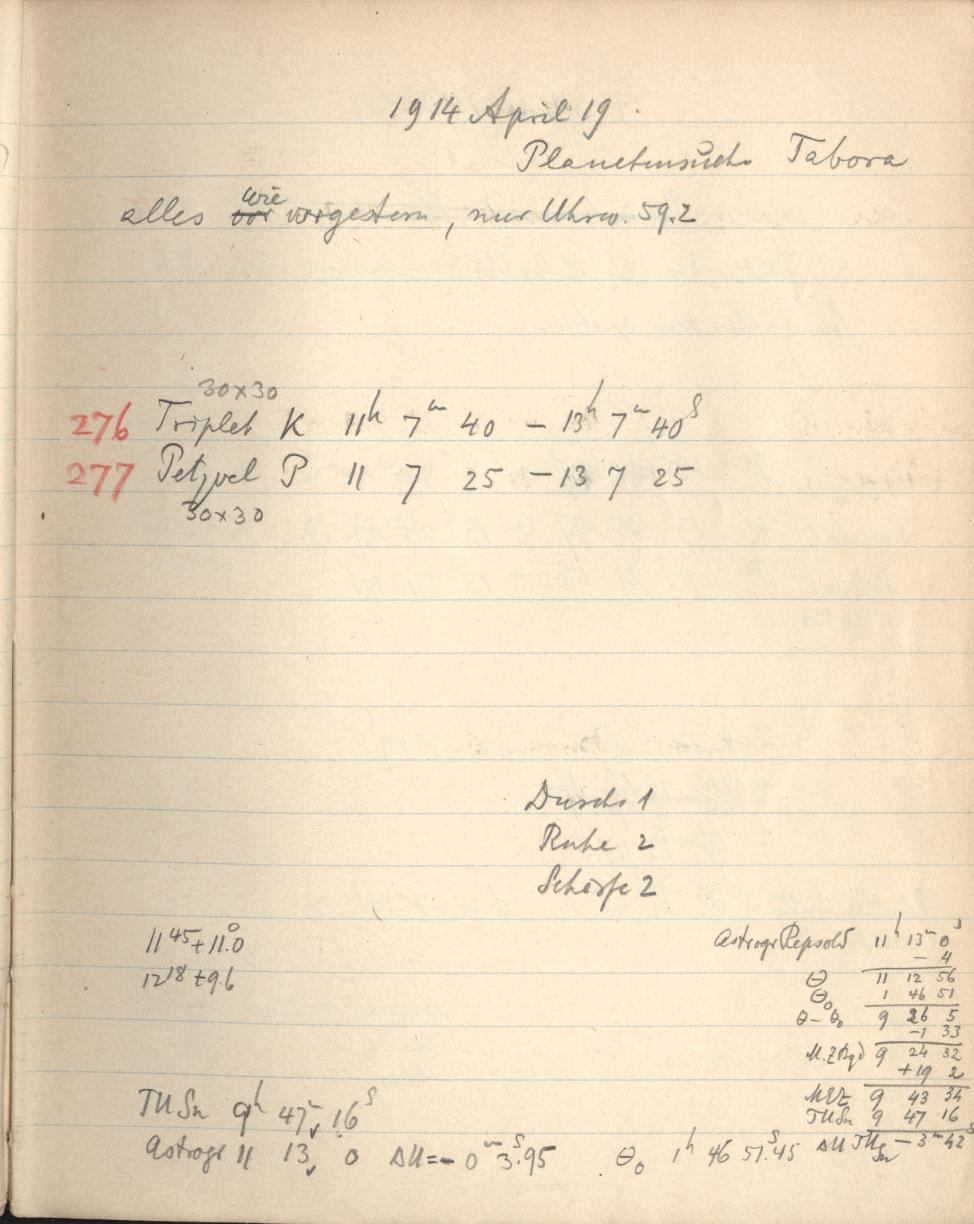 1914 April 19.
Planetensuche Tabora
alles wie vorgestern, nur Uhrw. 59.2
30x30
276 Triplet K 11h 7m 40 – 13h 7m 40s
277 Petzvel P 11 7 25 – 13 7 25
30x30
Durchs 1
Ruhe 2
Schärfe 2
11 45 + 11.0°
12 18 + 9.6
Astrogr Repsold 11h 13m 0s
– 4
Θ 11 12 56
Θ0 1 46 51
Θ–Θ0 9 26 5
–1 33
M.Z. Bgd 9 24 32
+19 2
MEZ 9 43 34
TUSn 9 47 16
ΔU TUSn – 3m 42s
TUSn 9h 47m 16s
Astrogr 11 13 0 ΔU = – 0m 3s.95 Θ0 1h 46 51s.45